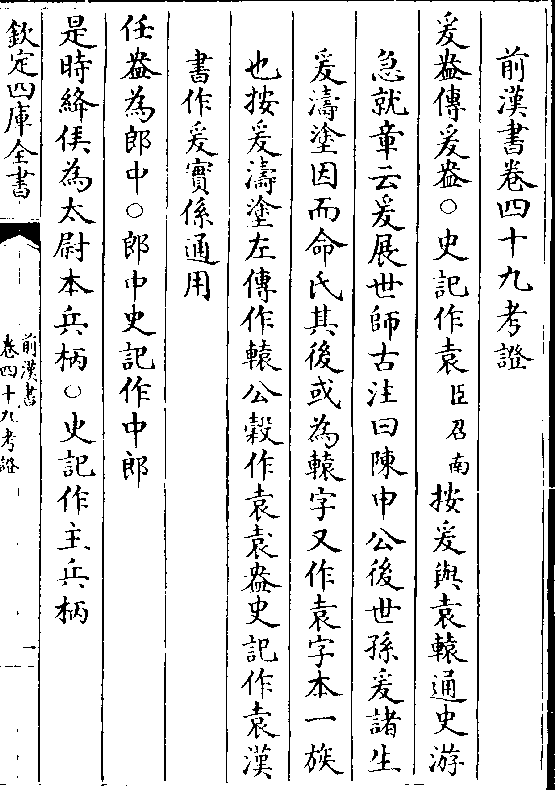 前漢書卷四十九考證
爰盎傳爰盎○史記作袁臣召南按爰與袁轅通史游
急就章云爰展世師古注曰陳申公後世孫爰諸生
爰濤塗因而命氏其後或為轅字又作袁字本一族
也按爰濤塗左傳作轅公穀作袁袁盎史記作袁漢
書作爰實係通用
任盎為郎中○郎中史記作中郎
是時絳侯為太尉本兵柄○史記作主兵柄
欽定四庫全書
前漢書
卷四十九考證
一